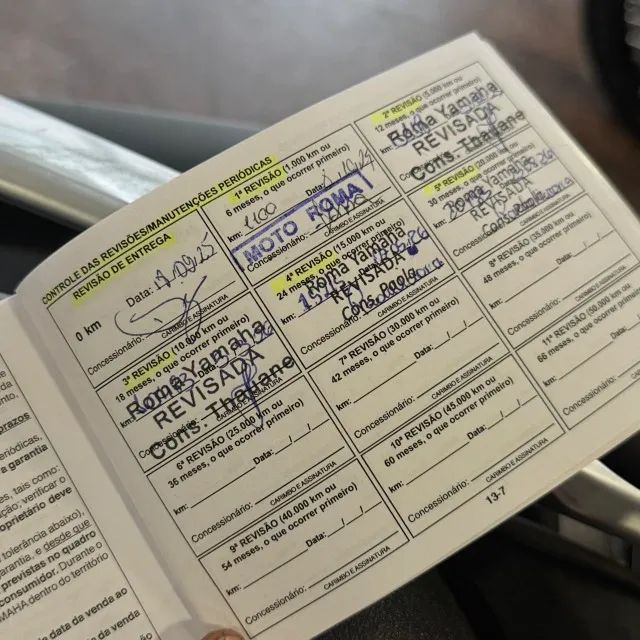 CONTROLE DAS REVISÕES/MANUTENÇÕES PERIÓDICAS
REVISÃO DE ENTREGA
Data: 17.09.25
0 km
Concessionário:
CARIMBO E ASSINATURA
1ª REVISÃO (1.000 km ou
6 meses, o que ocorrer primeiro)
km: 1100 Data:
MOTO ROMA
Concessionário:
CARIMBO E ASSINATURA
2ª REVISÃO (5.000 km ou
12 meses, o que ocorrer primeiro)
Roma Yamaha
REVISADA
Cons. Thauane
3ª REVISÃO (10.000 km ou
18 meses, o que ocorrer primeiro)
Roma Yamaha
km:
REVISADA
Cons. Thauane
4ª REVISÃO (15.000 km ou
24 meses, o que ocorrer primeiro)
Roma Yamaha
km:
REVISADA
Cons. Paola
Concessionário:
CARIMBO E ASSINATURA
5ª REVISÃO (20.000 km ou
30 meses, o que ocorrer primeiro)
Roma Yamaha
km:
REVISADA
CARIMBO E ASSINATURA
6ª REVISÃO (25.000 km ou
36 meses, o que ocorrer primeiro)
km: Data: / /
Concessionário:
CARIMBO E ASSINATURA
7ª REVISÃO (30.000 km ou
42 meses, o que ocorrer primeiro)
km: Data: / /
Concessionário:
CARIMBO E ASSINATURA
8ª REVISÃO (35.000 km ou
48 meses, o que ocorrer primeiro)
km: Data: / /
Concessionário:
CARIMBO E ASSINATURA
9ª REVISÃO (40.000 km ou
54 meses, o que ocorrer primeiro)
km: Data: / /
Concessionário:
CARIMBO E ASSINATURA
10ª REVISÃO (45.000 km ou
60 meses, o que ocorrer primeiro)
km: Data: / /
Concessionário:
CARIMBO E ASSINATURA
11ª REVISÃO (50.000 km ou
66 meses, o que ocorrer primeiro)
km: Data: / /
Concessionário:
CARIMBO E ASSINATURA
13-7
prazos
a garantia
es, tais como:
verificar o
oprietário deve
tolerância abaixo),
arantia, e desde que
previstas no quadro
consumidor. Durante o
MAHA dentro do território
e data da venda ao
da venda